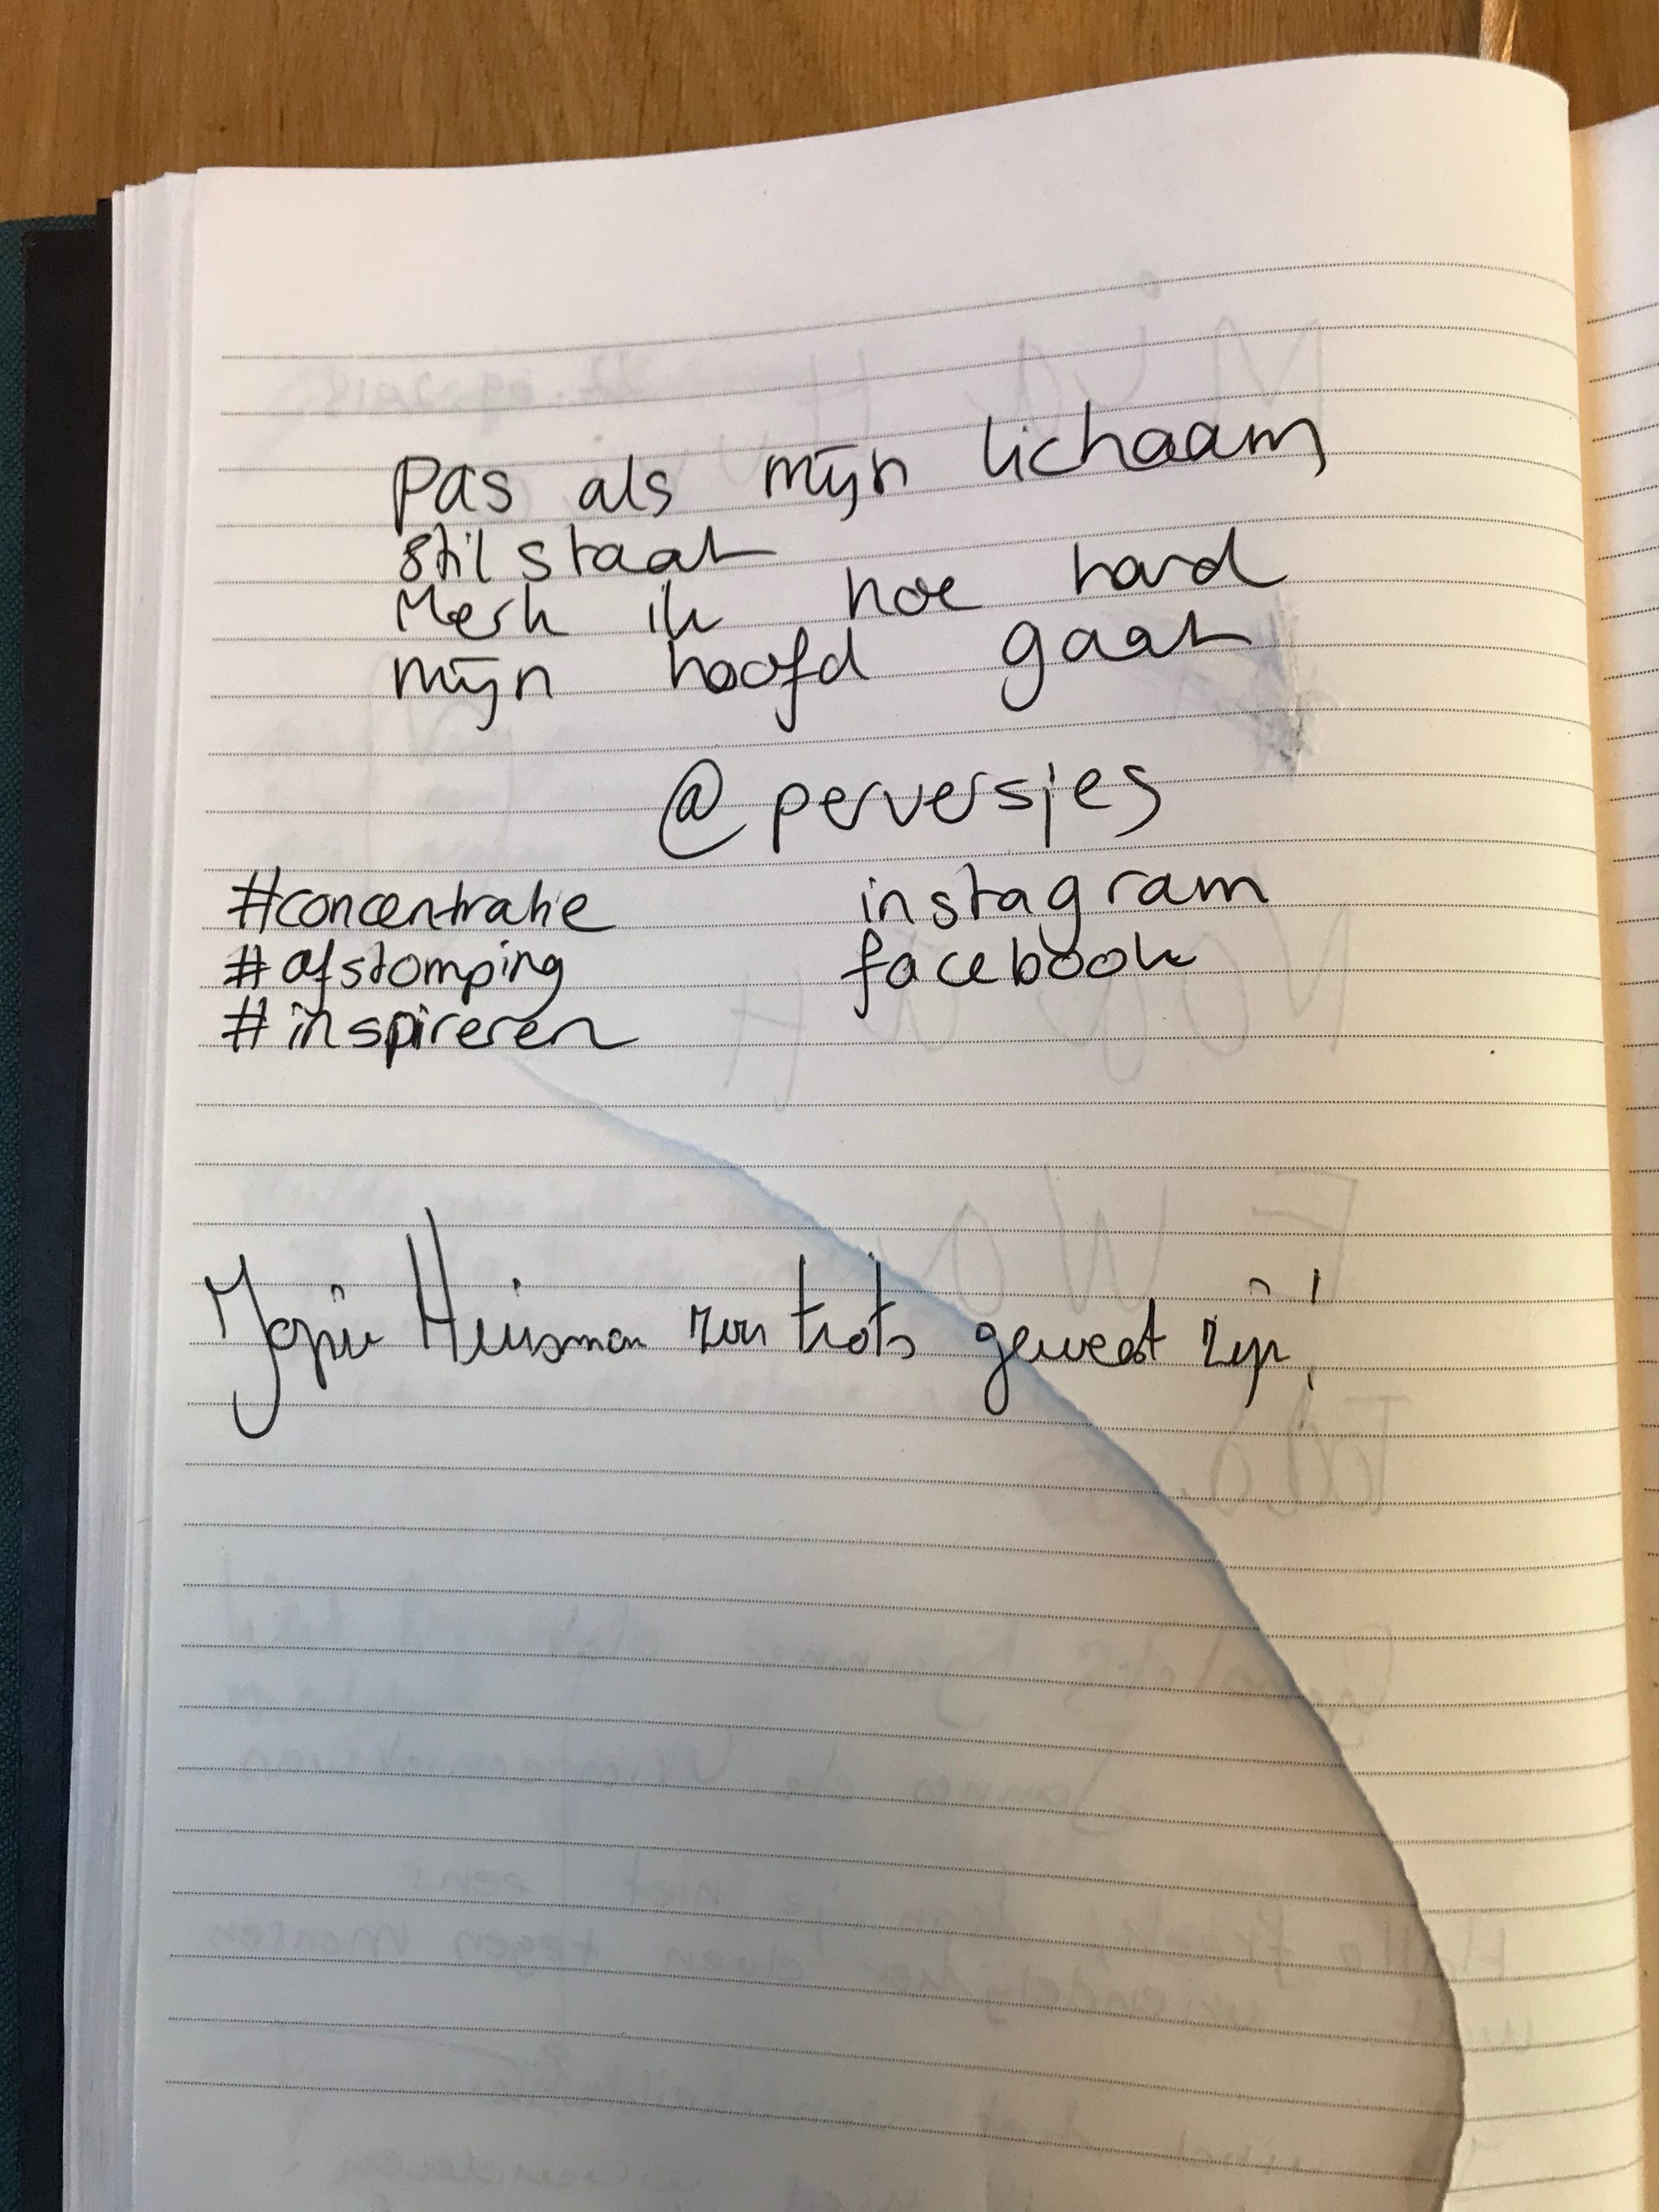 Pas als mijn lichaam
stil staat
Merk ik hoe hard
mijn hoofd gaat
@perversjes
#concentratie
#afstomping
#inspireren
instagram
facebook
Jopie Huisman zou trots geweest zijn!